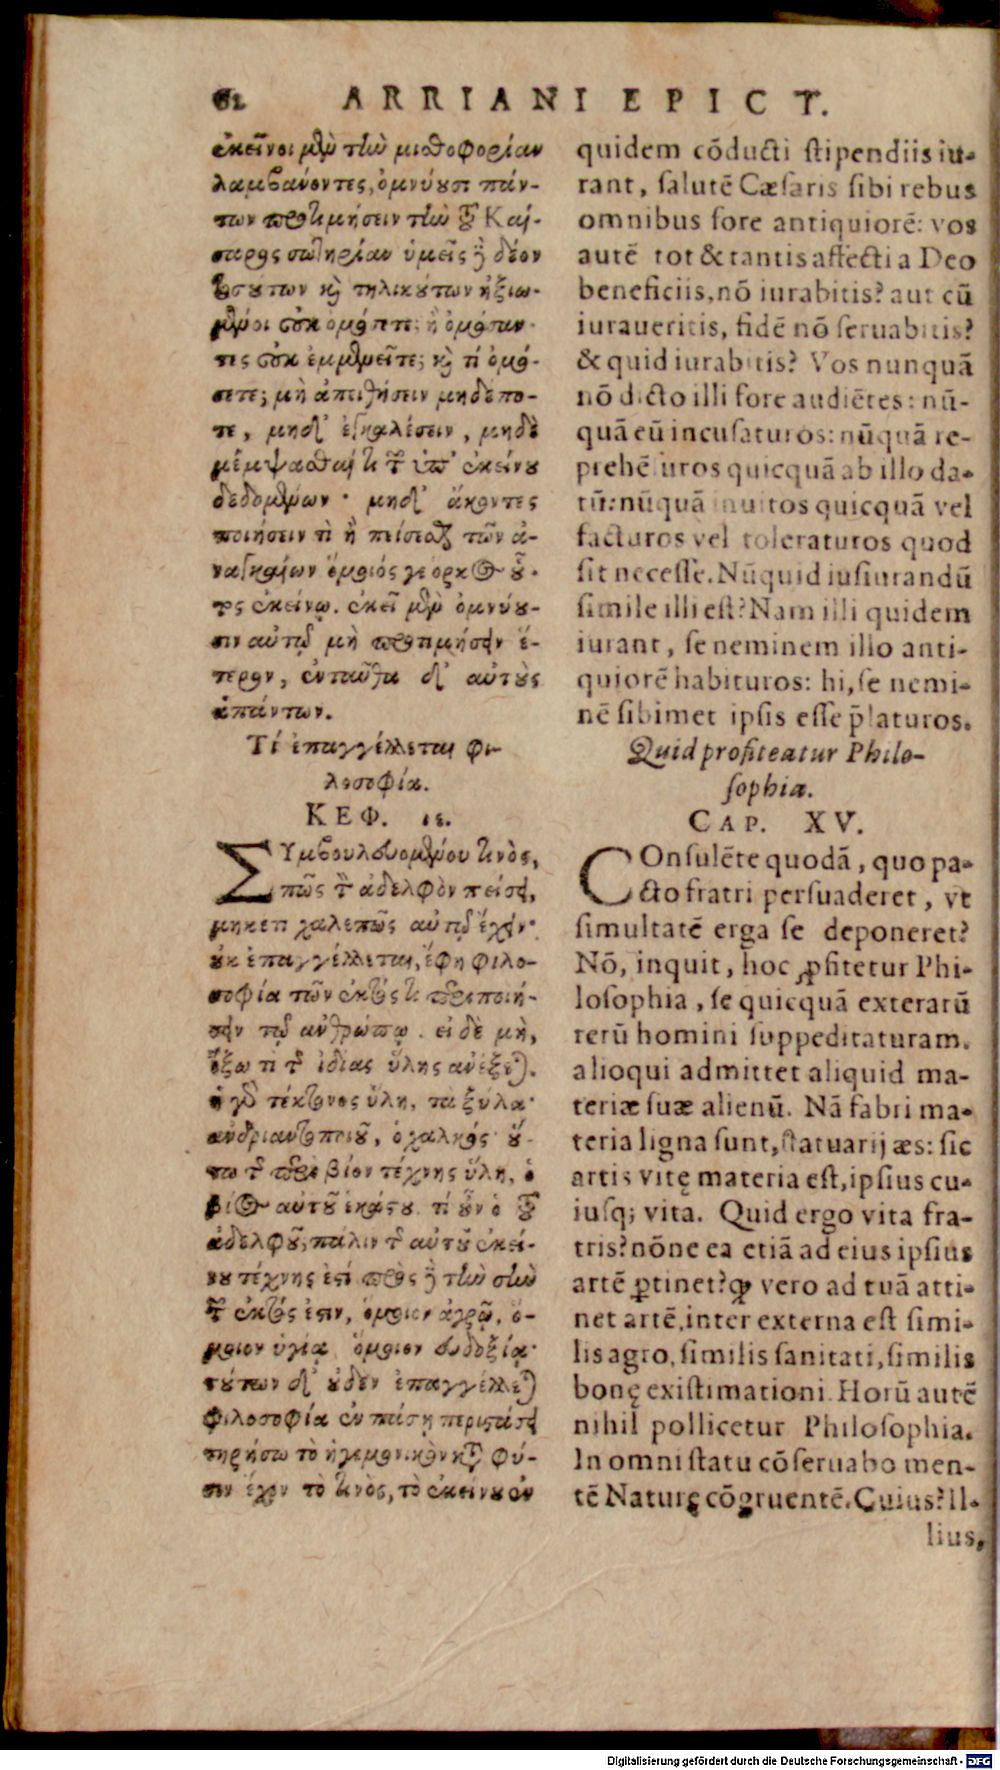 62 ARRIANI EPICT.
ἐκεῖνοι μὲν τὴν μισθοφορίαν
λαμβάνοντες, ὀμνύουσι πάν-
των προτιμήσειν τὴν τοῦ Καί-
σαρος σωτηρίαν ὑμεῖς δὲ δέον
τοσούτων καὶ τηλικούτων ἠξιω-
μένοι οὐκ ὀμόσετε; ἢ ὀμόσαν-
τες οὐκ ἐμμενεῖτε; καὶ τί ὀμό-
σετε; μὴ ἀπειθήσειν μηδέπο-
τε, μηδ' ἐγκαλέσειν, μηδὲ
μέμψασθαί τι τῶν ὑπ' ἐκείνου
δεδομένων· μηδ' ἄκοντες
ποιήσειν τὶ ἢ πείσεσθαι τῶν ἀ-
ναγκαίων ὅμοιός γε ὁρκος οὗ-
τος ἐκείνῳ. ἐκεῖ μὲν ὀμνύου-
σιν αὐτοῦ μὴ προτιμήσειν ἕ-
τερον, ἐνταῦθα δ' αὑτοὺς
ἁπάντων.
Τί ἐπαγγέλλεται φι-
λοσοφία.
ΚΕΦ. ιε.
Συμβουλευομένου τινὸς,
πῶς τὸν ἀδελφὸν πείσει,
μηκέτι χαλεπῶς αὐτῷ ἔχειν·
οὐκ ἐπαγγέλλεται, ἔφη φιλο-
σοφία τῶν ἐκτός τι περιποιή-
σειν τῷ ἀνθρώπῳ. εἰ δὲ μὴ,
ἔξω τι τῆς ἰδίας ὕλης ἀνέξεται.
ὡς γὰρ τέκτονος ὕλη, τὰ ξύλα·
ἀνδριαντοποιοῦ, ὁ χαλκός· οὕ-
τω τῆς περὶ βίον τέχνης ὕλη, ὁ
βίος αὐτοῦ ἑκάστου. τί οὖν ὁ τοῦ
ἀδελφοῦ; πάλιν τῆς αὐτοῦ ἐκεί-
νου τέχνης ἐστί πρὸς δὲ τὴν σὴν
τῶν ἐκτός ἐστιν, ὅμοιον ἀγρῷ, ὅ-
μοιον ὑγίᾳ ὅμοιον εὐδοξίᾳ·
τούτων δ' οὐδὲν ἐπαγγέλλεται
φιλοσοφία ἐν πάσῃ περιστάσει
τηρήσω τὸ ἡγεμονικὸν κατὰ φύ-
σιν ἔχον τὸ τινὸς, τὸ ἐκείνου ἐν
quidem cōducti stipendiis iu-
rant, salutē Cæsaris sibi rebus
omnibus fore antiquiorē: vos
autē tot & tantis affecti a Deo
beneficiis, nō iurabitis? aut cū
iuraueritis, fidē nō seruabitis?
& quid iurabitis? Vos nunquā
nō dicto illi fore audiētes: nū-
quā eū incusaturos: nūquā re-
prehēsuros quicquā ab illo da-
tū: nūquā inuitos quicquā vel
facturos vel toleraturos quod
sit necesse. Nūquid iusiurandū
simile illi est? Nam illi quidem
iurant, se neminem illo anti-
quiorē habituros: hi, se nemi-
nē sibimet ipsis esse p̄laturos.
Quid profiteatur Philo-
sophia.
CAP. XV.
COnsulēte quodā, quo pa-
cto fratri persuaderet, vt
simultatē erga se deponeret?
Nō, inquit, hoc ꝓfitetur Phi-
losophia, se quicquā exterarū
rerū homini suppeditaturam.
alioqui admittet aliquid ma-
teriæ suæ alienū. Nā fabri ma-
teria ligna sunt, statuarij æs: sic
artis vitę materia est, ipsius cu-
iusq; vita. Quid ergo vita fra-
tris? nōne ea etiā ad eius ipsius
artē ꝑtinet? ꝙ vero ad tuā atti-
net artē, inter externa est simi-
lis agro, similis sanitati, similis
bonę existimationi. Horū autē
nihil pollicetur Philosophia.
In omni statu cōseruabo men-
tē Naturę cōgruentē. Cuius? Il-
lius,
Digitalisierung gefördert durch die Deutsche Forschungsgemeinschaft - DFG